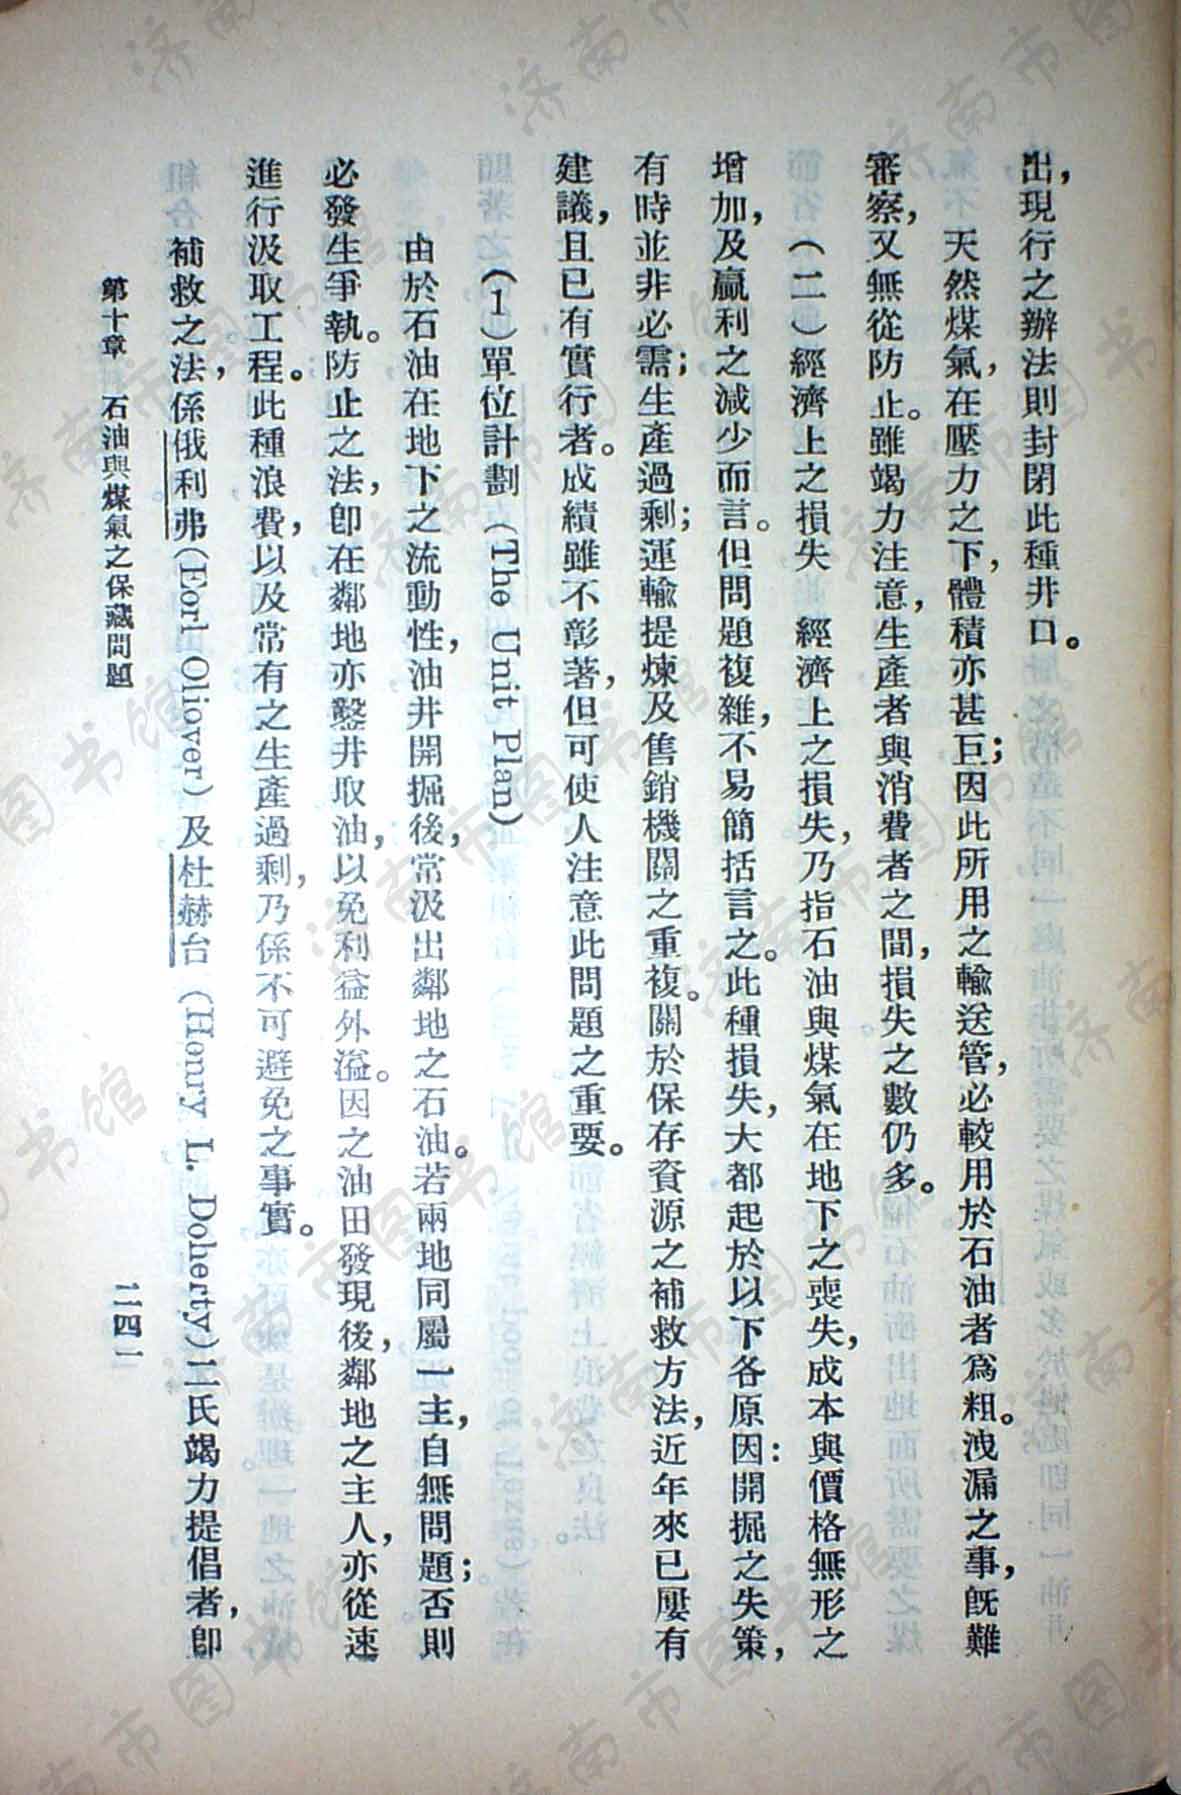 出，現行之辦法則封閉此種井口。
天然煤氣，在壓力之下，體積亦甚巨；因此所用之輸送管，必較用於石油者爲粗。洩漏之事，旣難
審察，又無從防止。雖竭力注意，生產者與消費者之間，損失之數仍多。
（二）經濟上之損失　經濟上之損失，乃指石油與煤氣在地下之喪失，成本與價格無形之
增加，及贏利之減少而言。但問題複雜，不易簡括言之。此種損失，大都起於以下各原因：開掘之失策，
有時並非必需；生產過剩；運輸提煉及售銷機關之重複。關於保存資源之補救方法，近年來已屢有
建議，且已有實行者。成績雖不彰著，但可使人注意此問題之重要。
（1）單位計劃（The Unit Plan）
由於石油在地下之流動性，油井開掘後，常汲出鄰地之石油。若兩地同屬一主，自無問題；否則
必發生爭執。防止之法，卽在鄰地亦鑿井取油，以免利益外溢。因之油田發現後，鄰地之主人，亦從速
進行汲取工程。此種浪費，以及常有之生產過剩，乃係不可避免之事實。
補救之法，係俄利弗（Eorl Oliover）及杜赫台（Honry L. Doherty）二氏竭力提倡者，卽
第十章　石油與煤氣之保藏問題
二四一
济南市图书馆